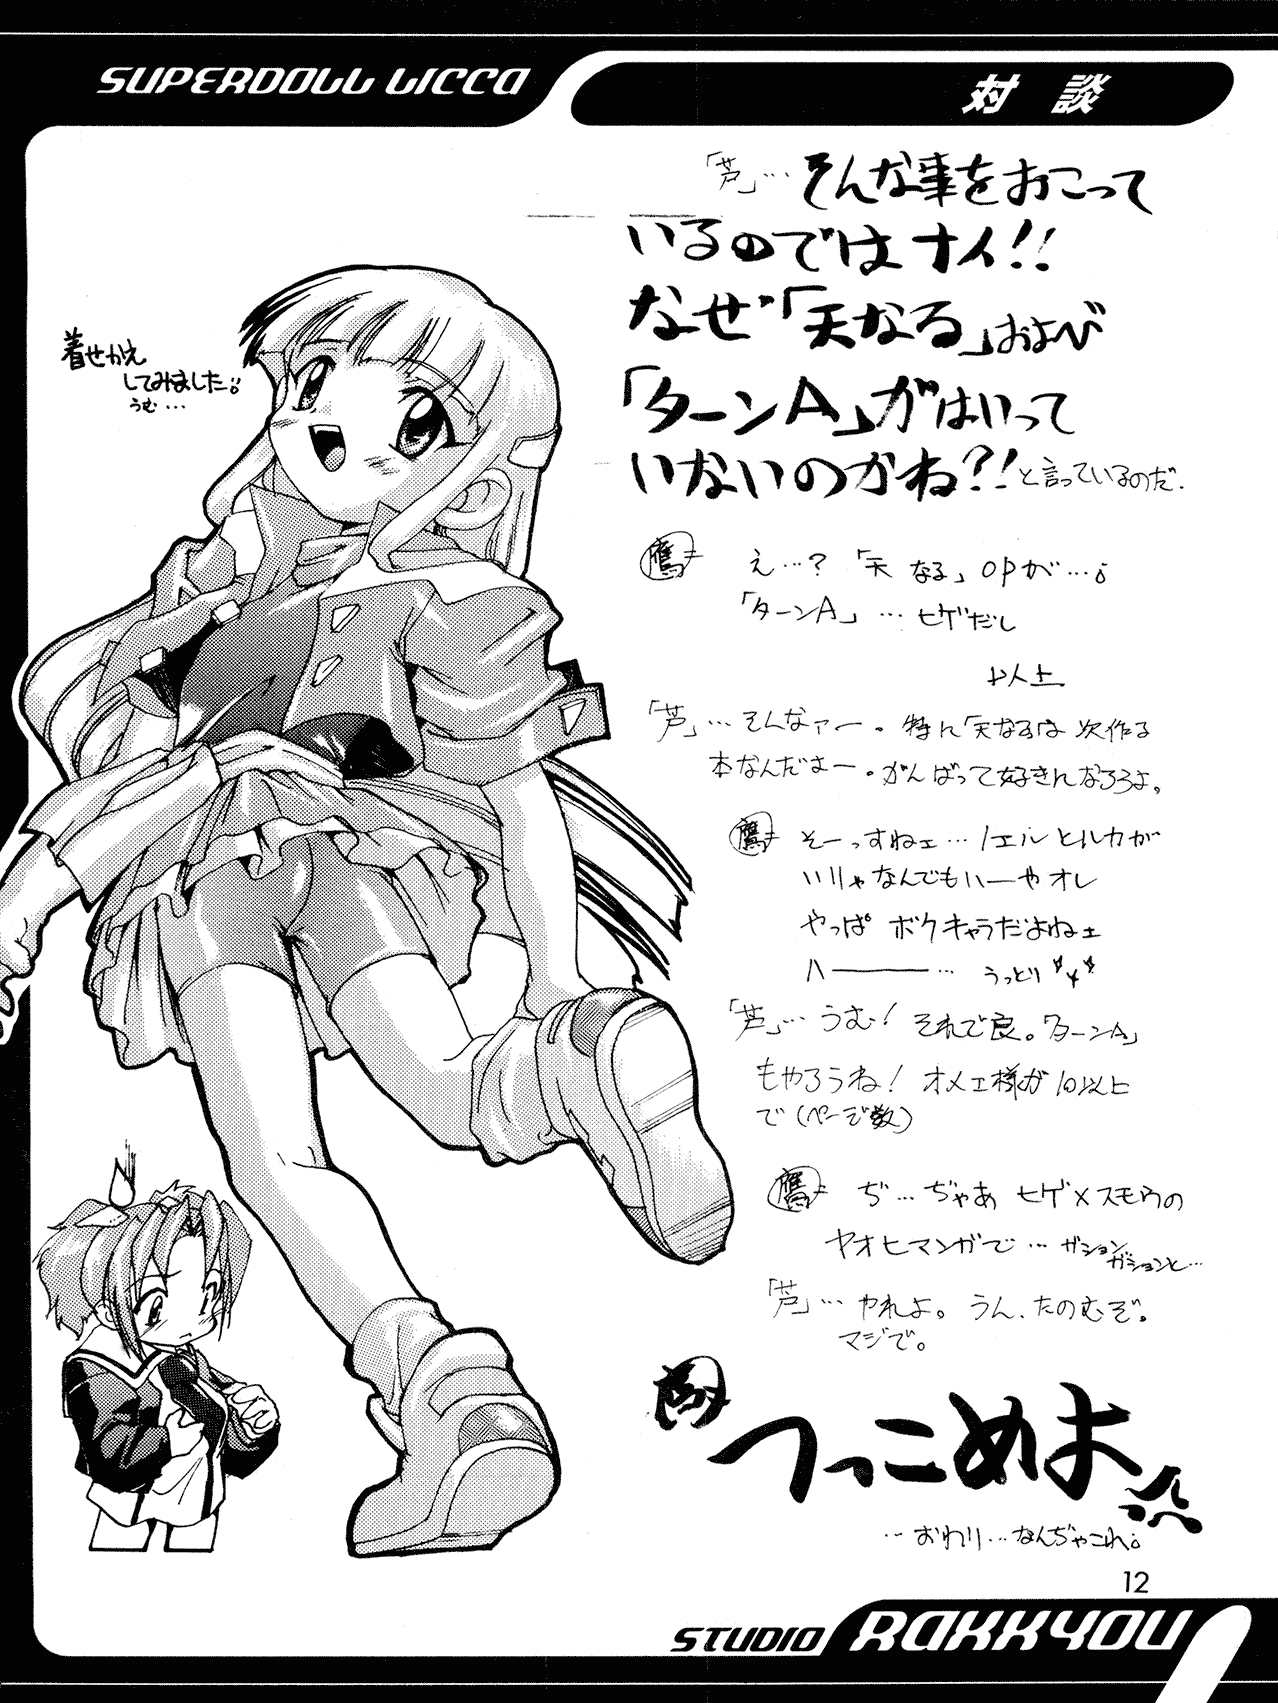 SUPERDOLL LICCA
対談
「芦」… そんな事をおこって
いるのではナイ!!
なぜ「天なる」および
「ターンA」がはいって
いないのかね?!と言っているのだ.
着せかえ
してみました。
うむ…
鷹 え…? 「天なる」OPが…。
「ターンA」… ヒゲだし
以上
「芦」… そんなァー。特に「天なるは次作る
本なんだよー。がんばって好きになろうよ。
鷹 そーっすねェ… ノエルとルカが
いりゃなんでもハーやオレ
やっぱ ボクキャラだよねェ
ハ――― … うっとり
「芦」… うむ! それで良。「ターンA」
もやろうね! オメェ様が10以上
で(ページ数)
鷹 ぢ…ぢゃあ ヒゲ×スモウの
ヤオヒマンガで … ガションガションと…
「芦」… やれよ。うん、たのむぞ。
マジで。
つっこめよ
…おわり…なんぢゃこれ。
12
STUDIO RAKKYOU